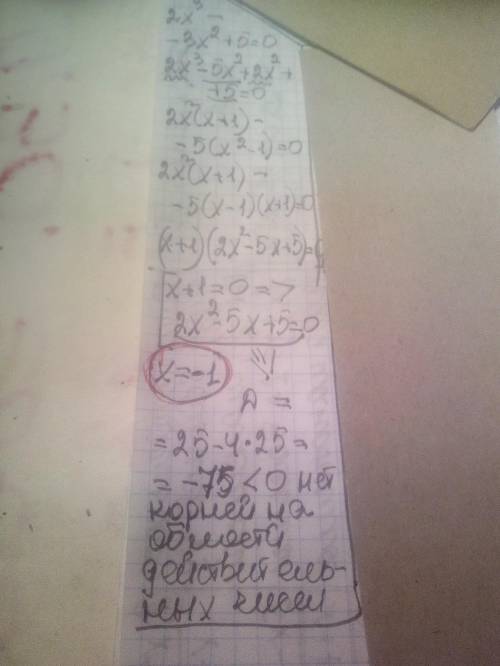 2x³ -
- 3x² + 5 = 0
2x³ - 5x² + 2x² +
+ 5 = 0
2x²(x+1) -
- 5(x² - 1) = 0
2x²(x+1) -
- 5(x-1)(x+1) = 0
(x+1)(2x² - 5x + 5) = 0
x + 1 = 0 =>
2x² - 5x + 5 = 0
x = -1
D =
= 25 - 4 • 25 =
= -75 < 0 нет
корней на
области
действитель-
ных чисел